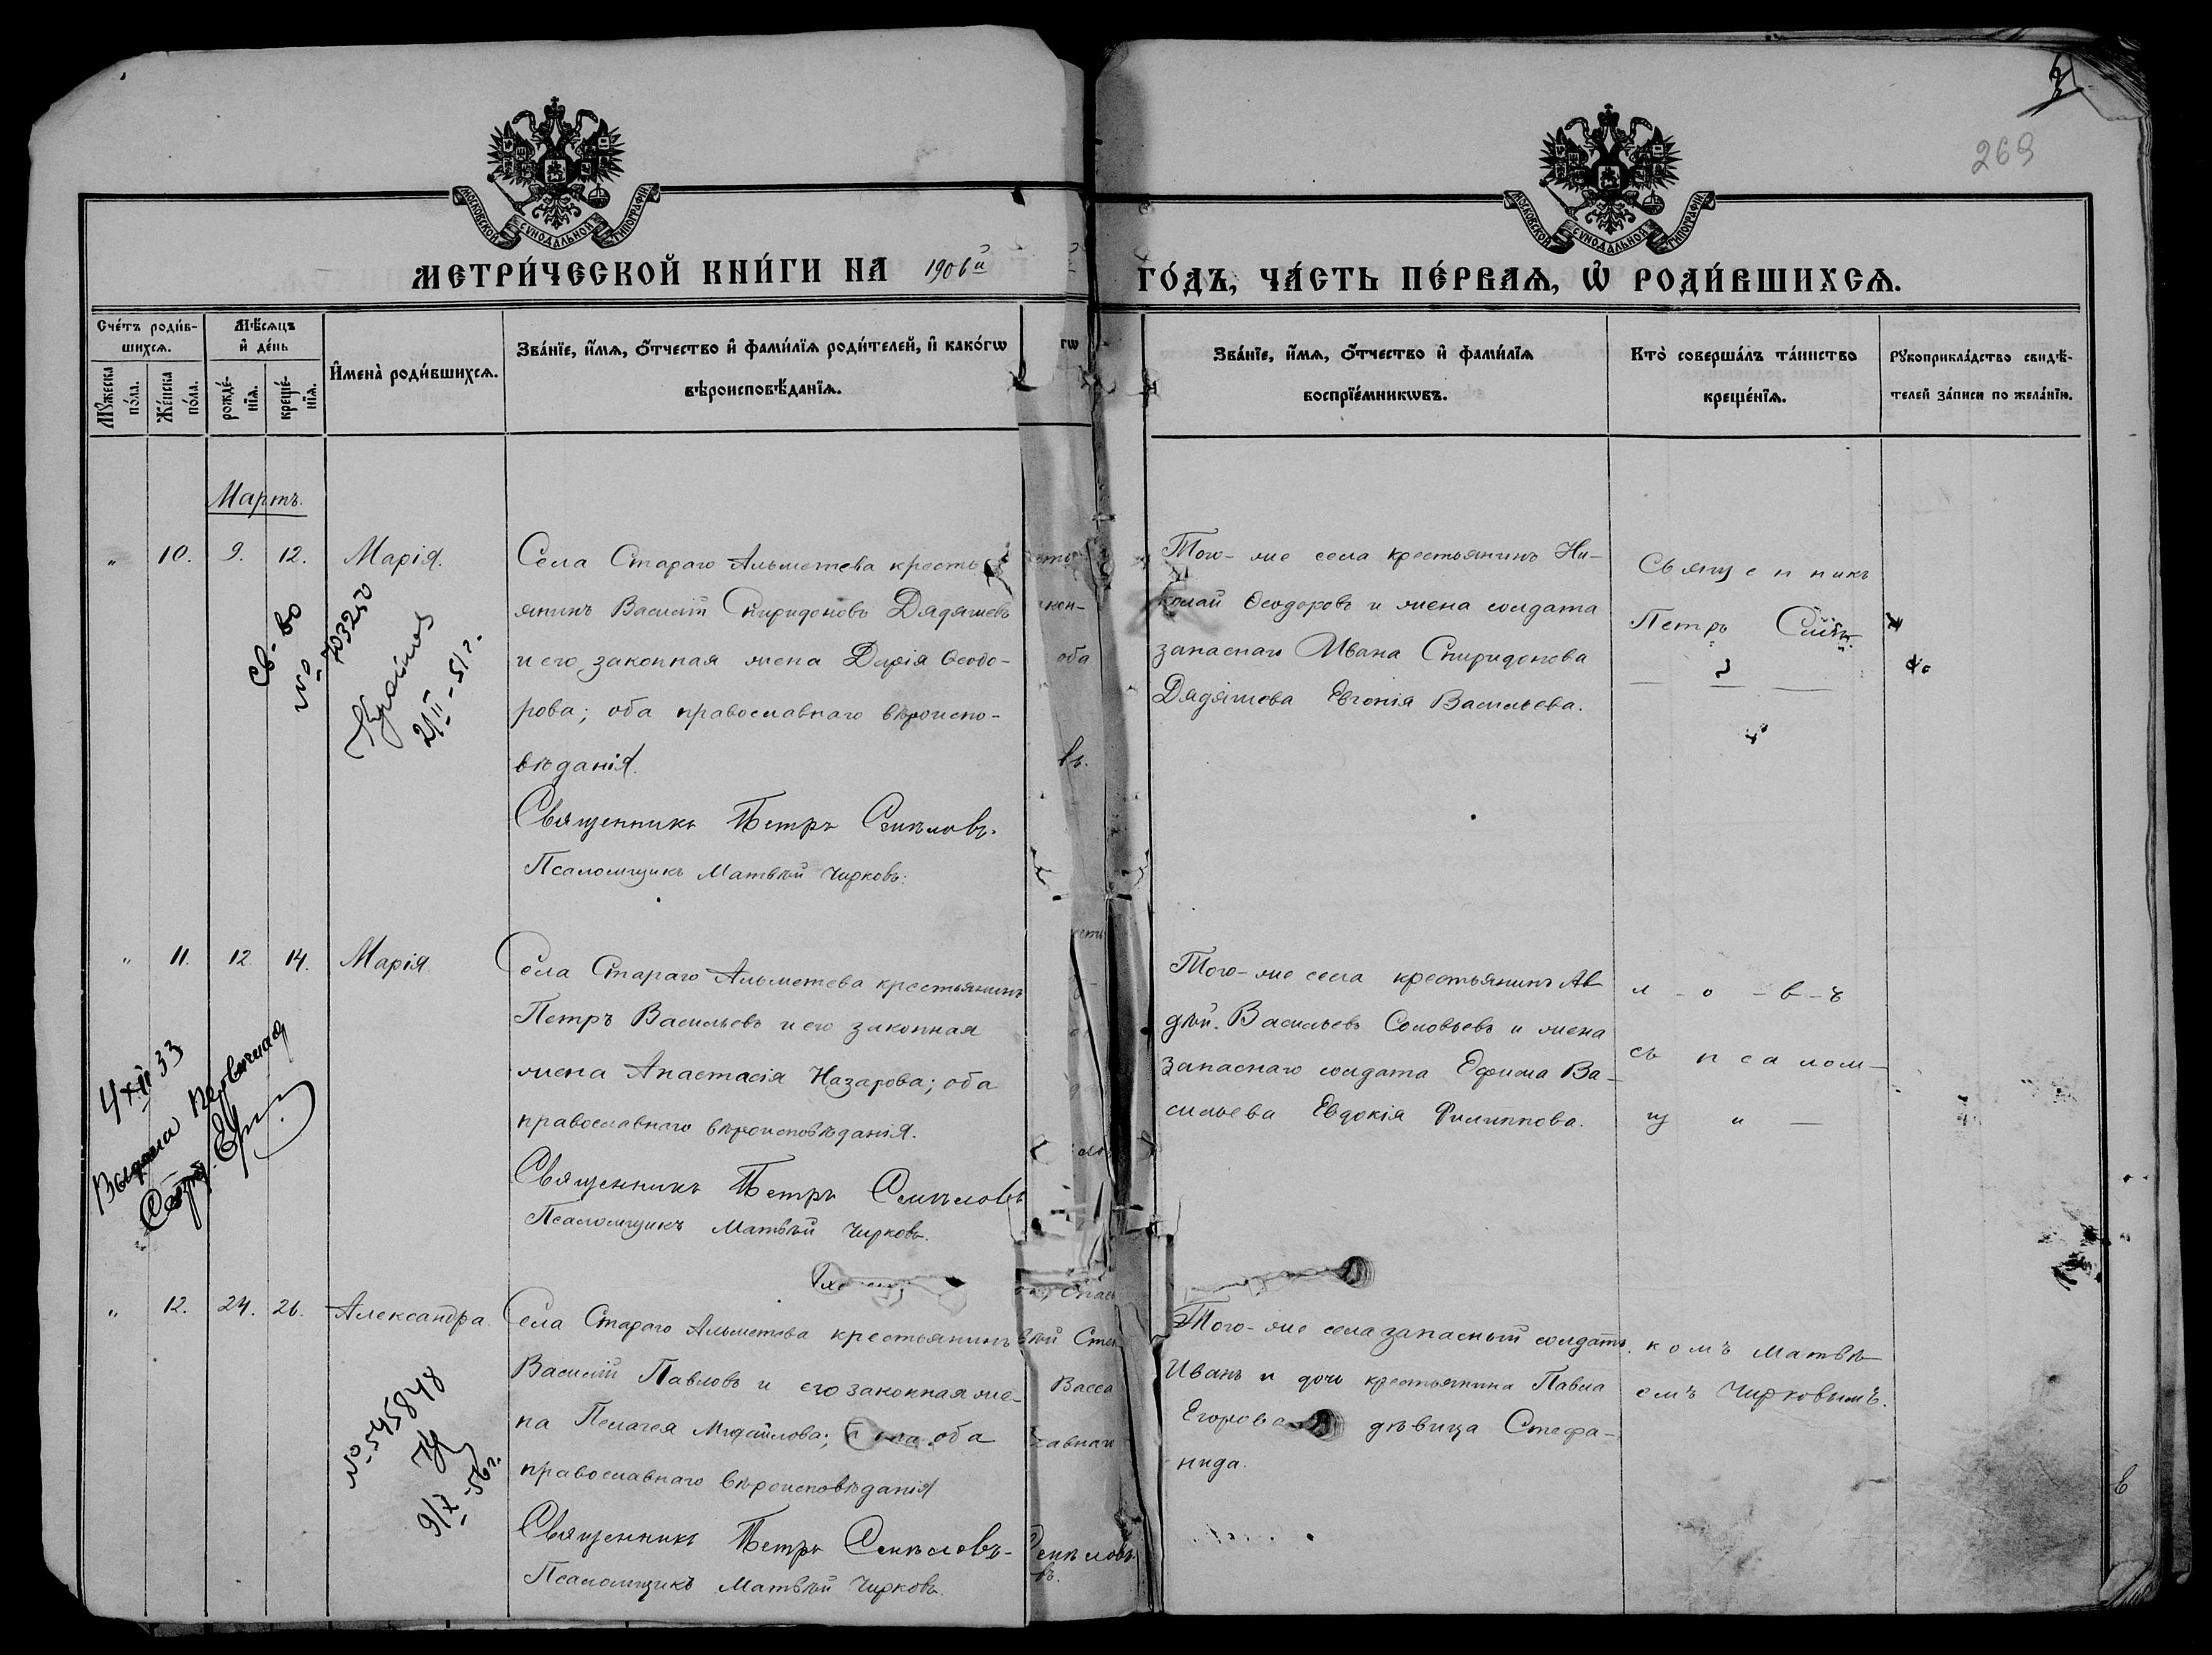 269
МОСКОВСКОЙ СѴНОДАЛЬНОЙ ТИПОГРАФІИ
МОСКОВСКОЙ СѴНОДАЛЬНОЙ ТИПОГРАФІИ
МЕТРИ́ЧЕСКОЙ КНИ́ГИ НА 1906й
ГО́ДЪ, ЧА́СТЬ ПЕ́РВАѦ, Ѡ҆ РОДИ́ВШИХСѦ.
Сче́тъ роди́в-
шихсѧ.
Мꙋ́жеска по́ла.
Же́нска по́ла.
Мѣ́сѧцъ
и҆ де́нь
рожде́-
нїѧ.
креще́-
нїѧ.
И҆мена̀ роди́вшихсѧ.
Зва́нїе, и҆́мѧ, ѻ҆́тчество и҆ фами́лїѧ роди́телей, и҆ како́гѡ
вѣроисповѣ́данїѧ.
гѡ
Зва́нїе, и҆́мѧ, ѻ҆́тчество и҆ фами́лїѧ
воспрїе́мникѡвъ.
Кто̀ соверша́лъ та́инство
креще́нїѧ.
Рꙋкоприкла́дство свидѣ́-
телей за́писи по жела́нїю.
Мартъ.
„ 10. 9. 12. Марія.
Села Стараго Альметева кресть
янинъ Василій Спиридоновъ Дядяшевъ
и его законная жена Дарія Ѳеодо-
рова; оба православнаго вѣроиспо-
вѣданія.
Священникъ Петръ Смѣловъ.
Псаломщикъ Матвѣй Чирковъ.
Св-во
№ 703250
21/II-51г.
оба
въ.
Того-же села крестьянинъ Ни-
колай Ѳеодоровъ и жена солдата
запаснаго Ивана Спиридонова
Дядяшева Евгенія Васильева.
Священникъ
Петръ Смѣ-
„ 11. 12. 14. Марія
Села Стараго Альметева крестьянинъ
Петръ Васильевъ и его законная
жена Анастасія Назарова; оба
православнаго вѣроисповѣданія.
Священникъ Петръ Смѣловъ
Псаломщикъ Матвѣй Чирковъ.
4 XII 33
Выдана
Того-же села крестьянинъ Ав
дѣй Васильевъ Соловьевъ и жена
запаснаго солдата Ефима Ва-
сильева Евдокія Филиппова.
л-о-в-ъ
съ псалом-
щи-
„ 12. 24. 26. Александра.
Села Стараго Альметева крестьянинъ
Василій Павловъ и его законная же-
на Пелагея Михайлова; оба
православнаго вѣроисповѣданія
Священникъ Петръ Смѣловъ-
Псаломщикъ Матвѣй Чирковъ.
№ 545848
9/X-56г.
Васса
Смѣловъ
въ.
Того-же села запасный солдатъ
Иванъ и дочь крестьянина Павла
Егорова дѣвица Стефа-
нида.
комъ Матвѣ-
емъ Чирковымъ.